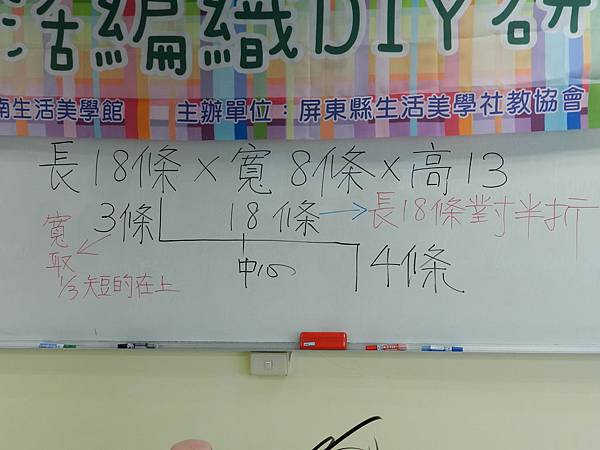 活編織DIY研
南生活美學館 主辦單位：屏東縣生活美學社教協會
長18條×寬8條×高13
3條 18條→長18條對半折
寬取
1/3短的在上
中心
4條